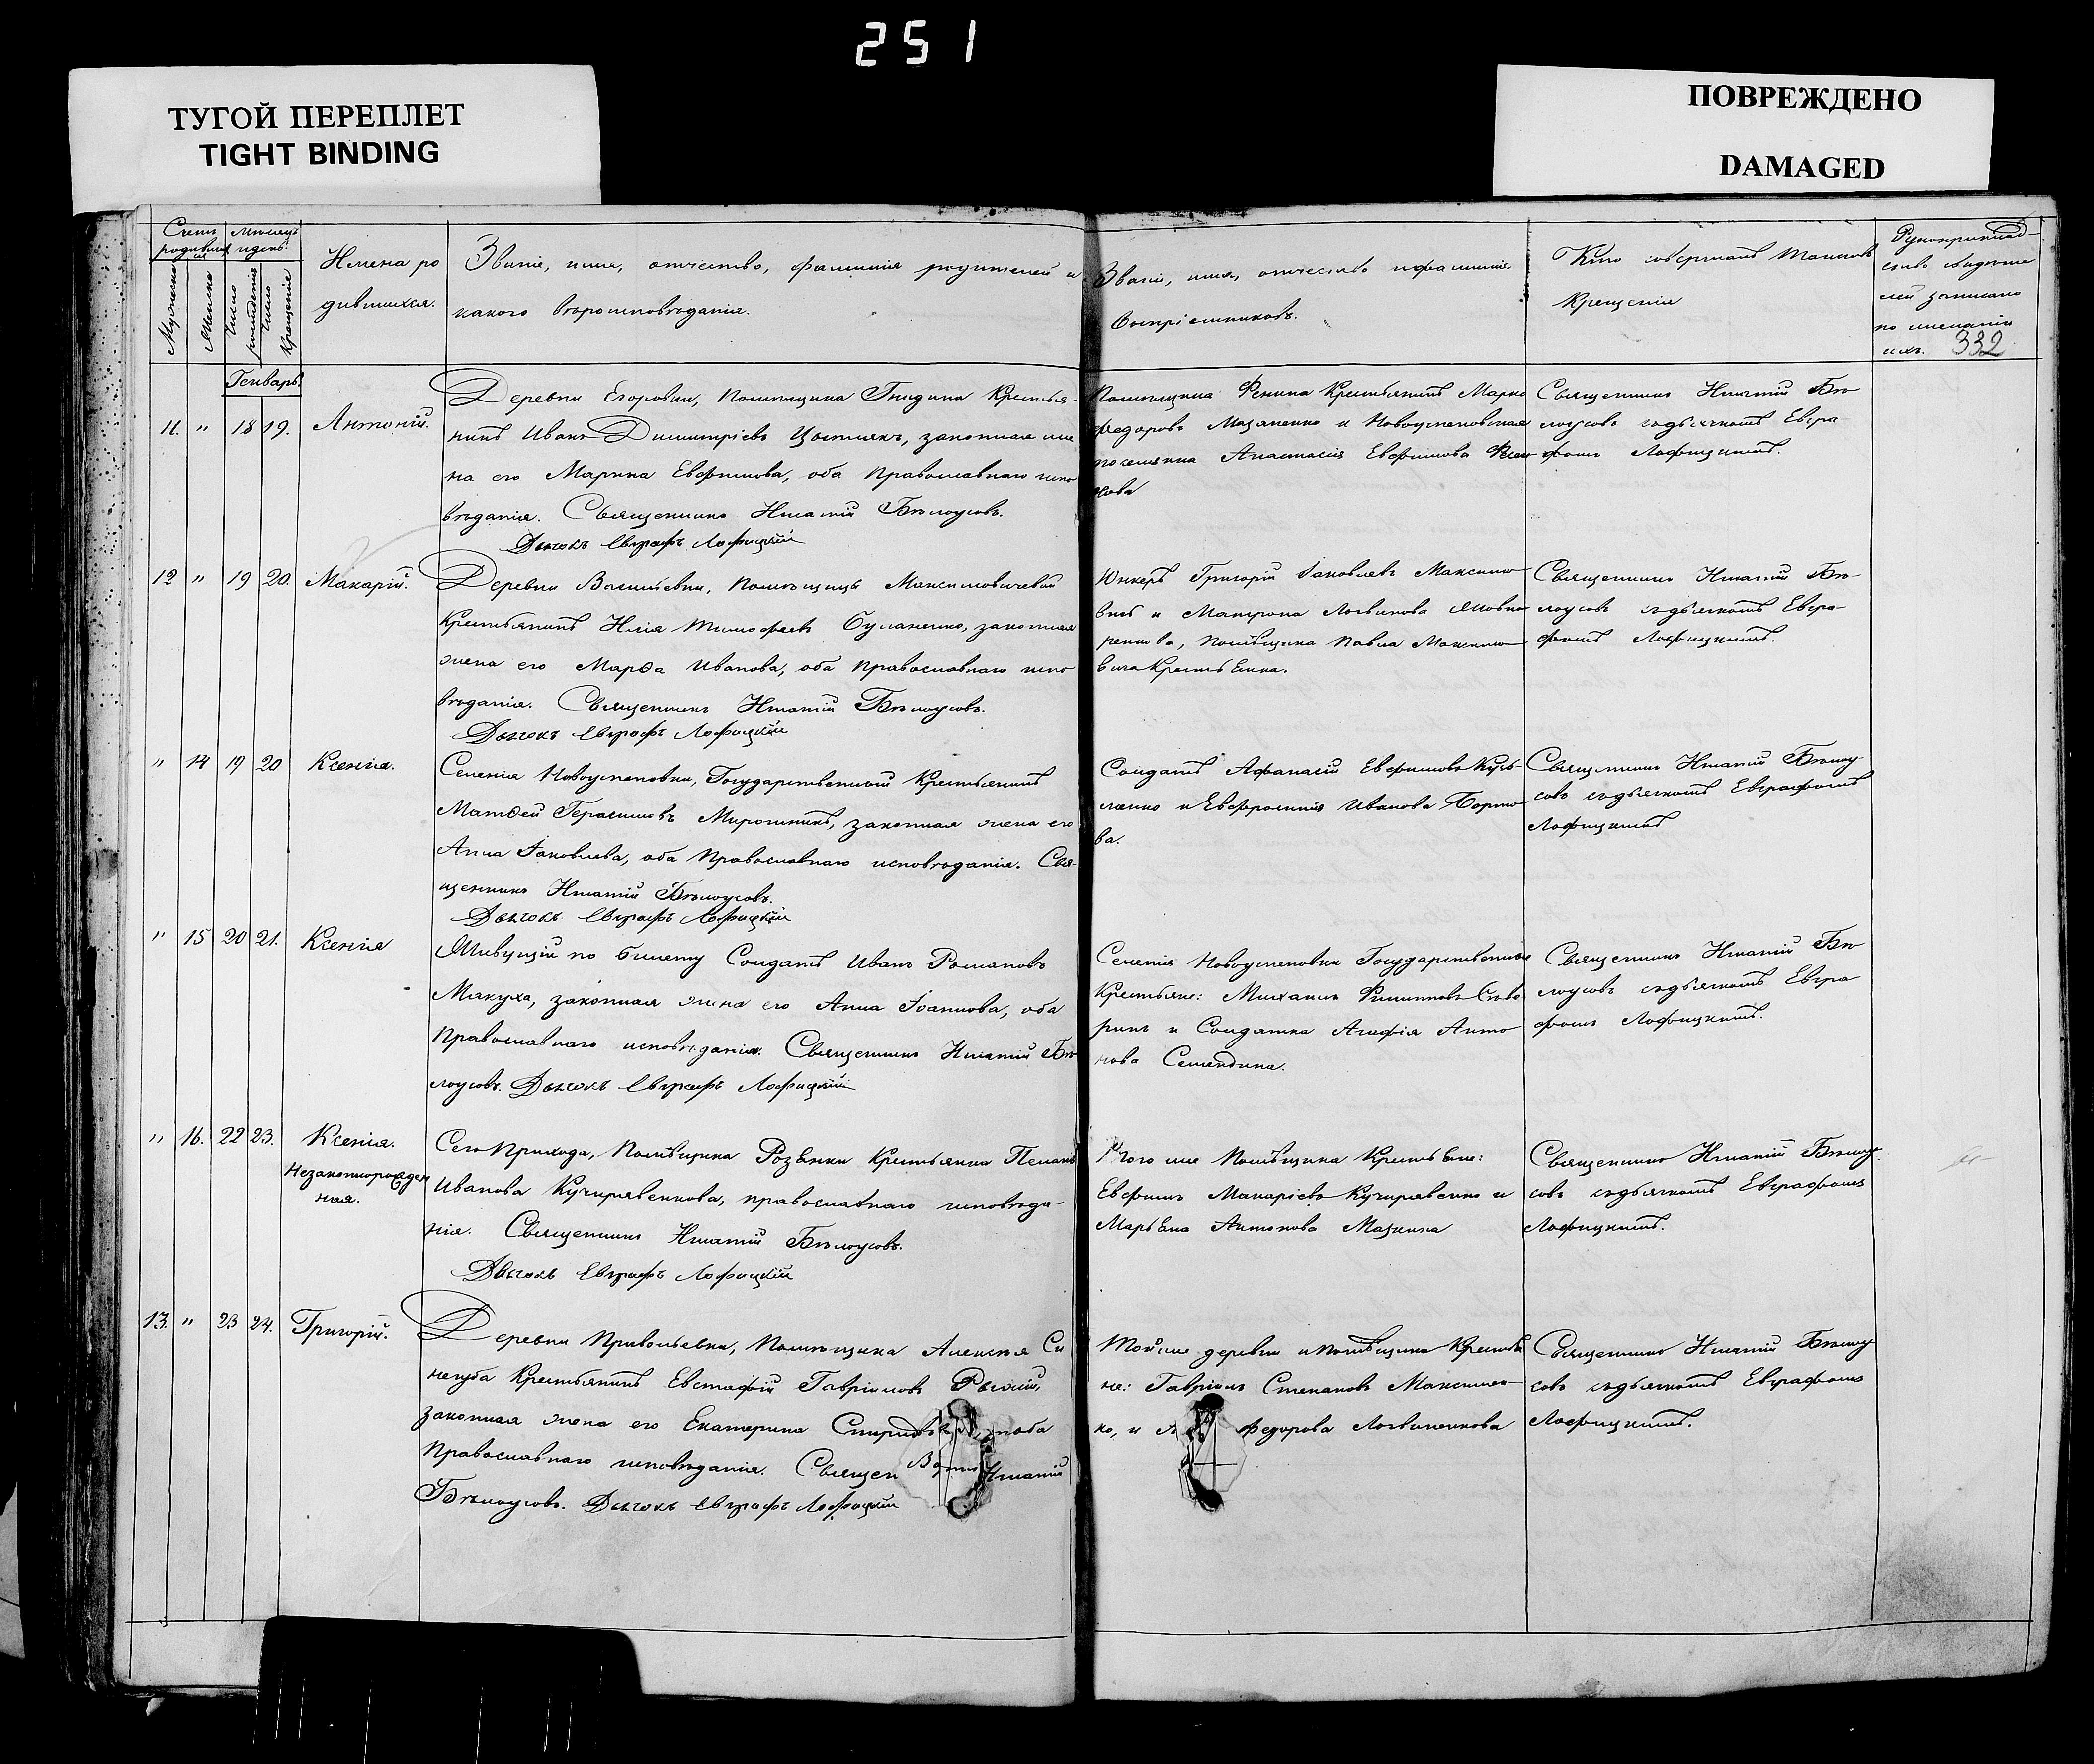 251
ТУГОЙ ПЕРЕПЛЕТ
TIGHT BINDING
ПОВРЕЖДЕНО
DAMAGED
Счетъ родившихся
Мѣсяцъ и день.
Мужеска
Женска
Число рожденія
Число Крещенія
Имена ро
дившихся.
Званіе, имя, отчество, фамилія родителей и
какого вѣроисповѣданія.
Званіе, имя, отчество и фамилія
Воспріемниковъ.
Кто совершалъ таинство
Крещенія
Рукоприклад-
ство свидѣте
лей записано
по желанію
ихъ.
332
Генварь.
11. " 18 19. Антоній.
Деревни Егоровки, Помѣщика Гнидина Крестья-
нинъ Иванъ Димитріевъ законная же
на его Марина Евфимова, оба Православнаго испо
вѣданія. Священникъ Игнатій Бѣлоусовъ.
Дьячокъ Евграфъ Лофицкій
Помѣщика Фенина Крестьянинъ Марко
Федоровъ Мазаненко и Новоуспеновская
поселянка Анастасія Евфимова
Священникъ Игнатій Бѣ
лоусовъ съ дьячкомъ Евгра
фомъ Лофицкимъ.
12 " 19 20. Макарій.
Деревни Васильевки, Помѣщицы Максимовичевой
Крестьянинъ Илія Тимофеевъ Буланенко, законная
жена его Марѳа Иванова, оба Православнаго испо
вѣданія. Священникъ Игнатій Бѣлоусовъ.
Дьячокъ Евграфъ Лофицкій
Юнкеръ Григорій Іаковлевъ Максимо
вичъ и Матрона Логвинова Яково
ренкова, Помѣщика Павла Максимо
вича Крестьянка.
Священникъ Игнатій Бѣ-
лоусовъ съ дьячкомъ Евгра-
фомъ Лофицкимъ.
" 14 19 20 Ксенія.
Селенія Новоуспеновки, Государственный Крестьянинъ
Матѳей Герасимовъ Мирошникъ, законная жена его
Анна Іаковлева, оба Православнаго исповѣданія. Свя-
щенникъ Игнатій Бѣлоусовъ.
Дьячокъ Евграфъ Лофицкій
Солдатъ Афанасій Евфимовъ Кузь-
менко и Евфросинія Иванова Борто
ва.
Священникъ Игнатій Бѣлоу-
совъ съ дьячкомъ Евграфомъ
Лофицкимъ
" 15 20 21. Ксенія
Живущій по билету Солдатъ Иванъ Романовъ
Макуха, законная жена его Анна Іоаннова, оба
Православнаго исповѣданія. Священникъ Игнатій Бѣ
лоусовъ. Дьячокъ Евграфъ Лофицкій
Селенія Новоуспеновки Государственные
Крестьяне: Михаилъ Филипповъ Ство
ринъ и Солдатка Агафія Анто
нова Семендина.
Священникъ Игнатій Бѣ
лоусовъ съ дьячкомъ Евгра
фомъ Лофицкимъ.
" 16. 22 23. Ксенія.
Незаконнорожден
ная.
Сего Прихода, Помѣщика Розѣнки Крестьянка Пелагія
Иванова Кучирявенкова, православнаго исповѣда-
нія. Священникъ Игнатій Бѣлоусовъ.
Дьячокъ Евграфъ Лофицкій
Того же Помѣщика Крестьяне:
Евфимъ Макаріевъ Кучирявенко и
Марьяна Антонова Мазкина
Священникъ Игнатій Бѣлоу
совъ съ дьячкомъ Евграфомъ
Лофицкимъ.
13. " 23 24. Григорій.
Деревни Привольевки, Помѣщика Алексѣя Си
негуба Крестьянинъ Евстафій Гавріиловъ Рыжій,
законная жена его Екатерина оба
Православнаго исповѣданія. Священ Игнатій
Бѣлоусовъ. Дьячокъ Евграфъ Лофицкій
Той же деревни и Помѣщика Крестья
не: Гавріилъ Степановъ Максимен-
ко, и Федорова Логвиненкова
Священникъ Игнатій Бѣлоу
совъ съ дьячкомъ Евграфомъ
Лофицкимъ.